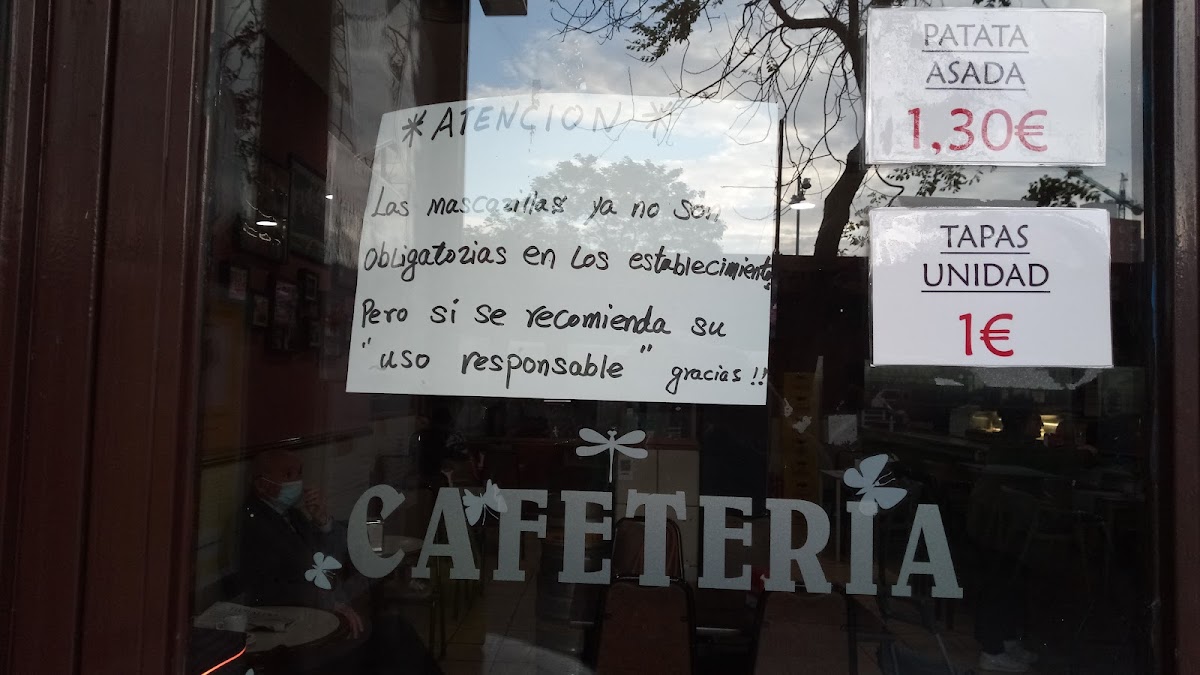 *ATENCION*
Las mascarillas ya no son
obligatorias en los establecimientos
Pero si se recomienda su
"uso responsable" gracias!!
PATATA
ASADA
1,30€
TAPAS
UNIDAD
1€
CAFETERÍA